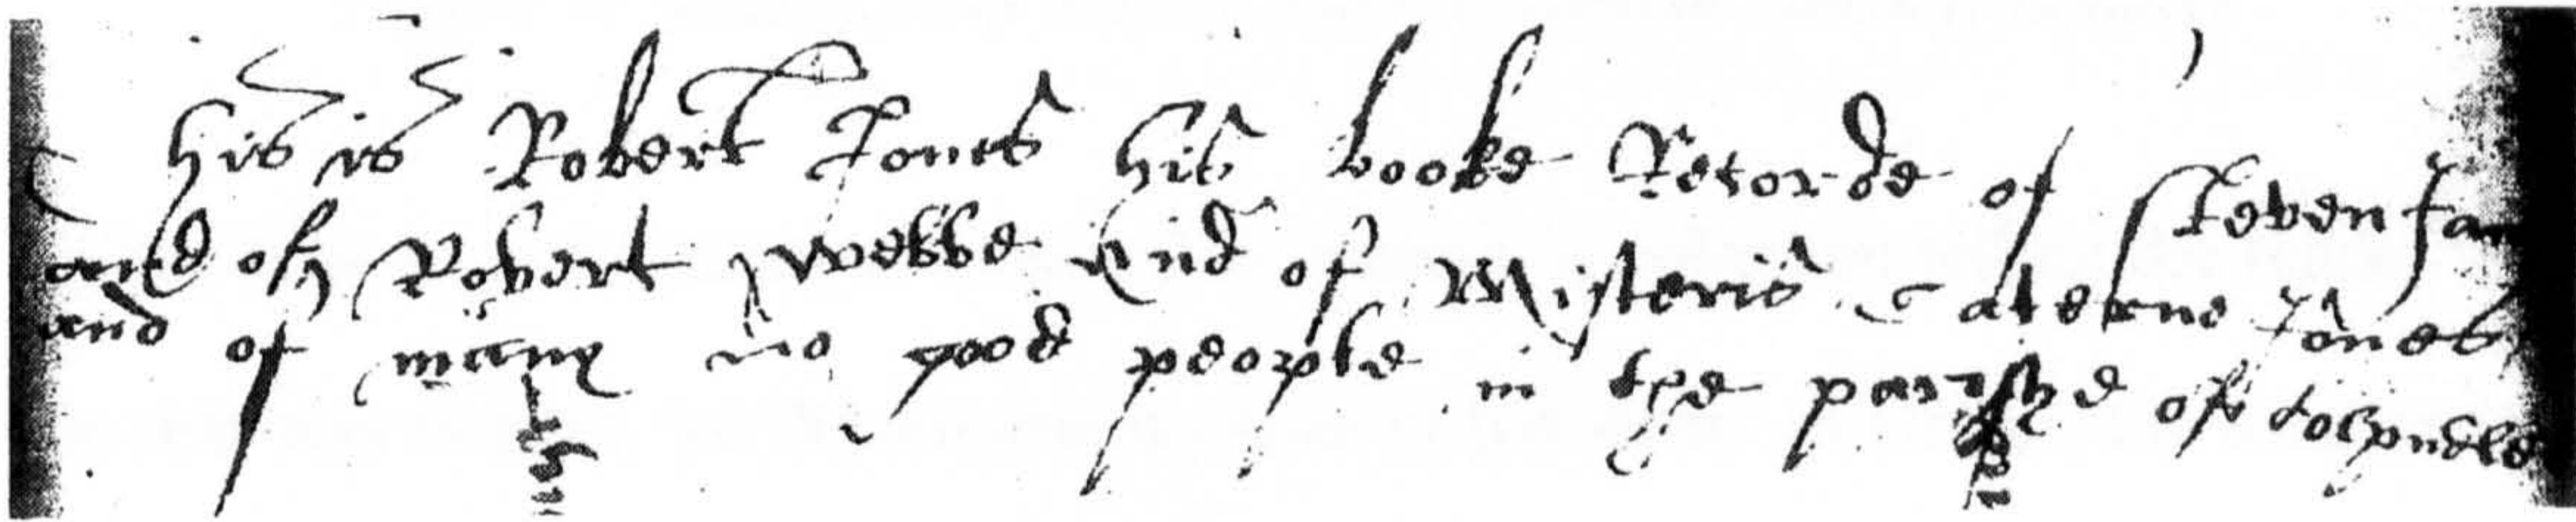 This is Robert Jones his booke Recorde of steven fan
and of Robert webbe And of Misteris Caterne Jones
and of many mo good people in the parishe of tolpudle